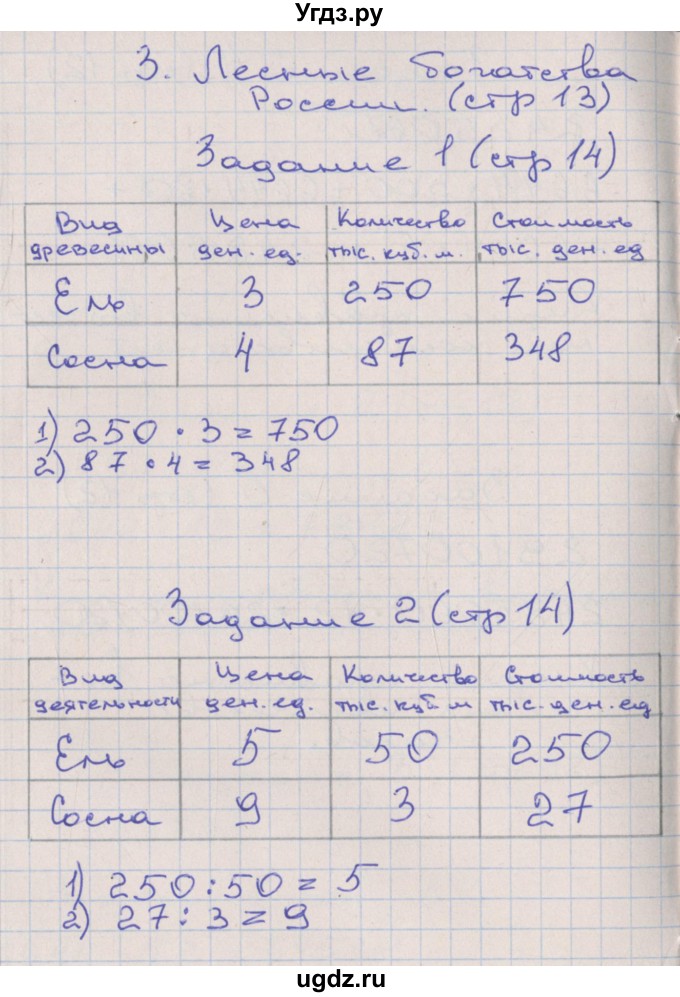 Угдз.ру
3. Лесные богатства
России. (стр 13)
Задание 1 (стр 14)
Вид древесины Цена ден. ед. Количество тыс. куб. м. Стоимость тыс. ден. ед
Ель 3 250 750
Сосна 4 87 348
1) 250 · 3 = 750
2) 87 · 4 = 348
Задание 2 (стр 14)
Вид деятельности Цена ден. ед. Количество тыс. куб. м Стоимость тыс. ден. ед
Ель 5 50 250
Сосна 9 3 27
1) 250 : 50 = 5
2) 27 : 3 = 9
ugdz.ru